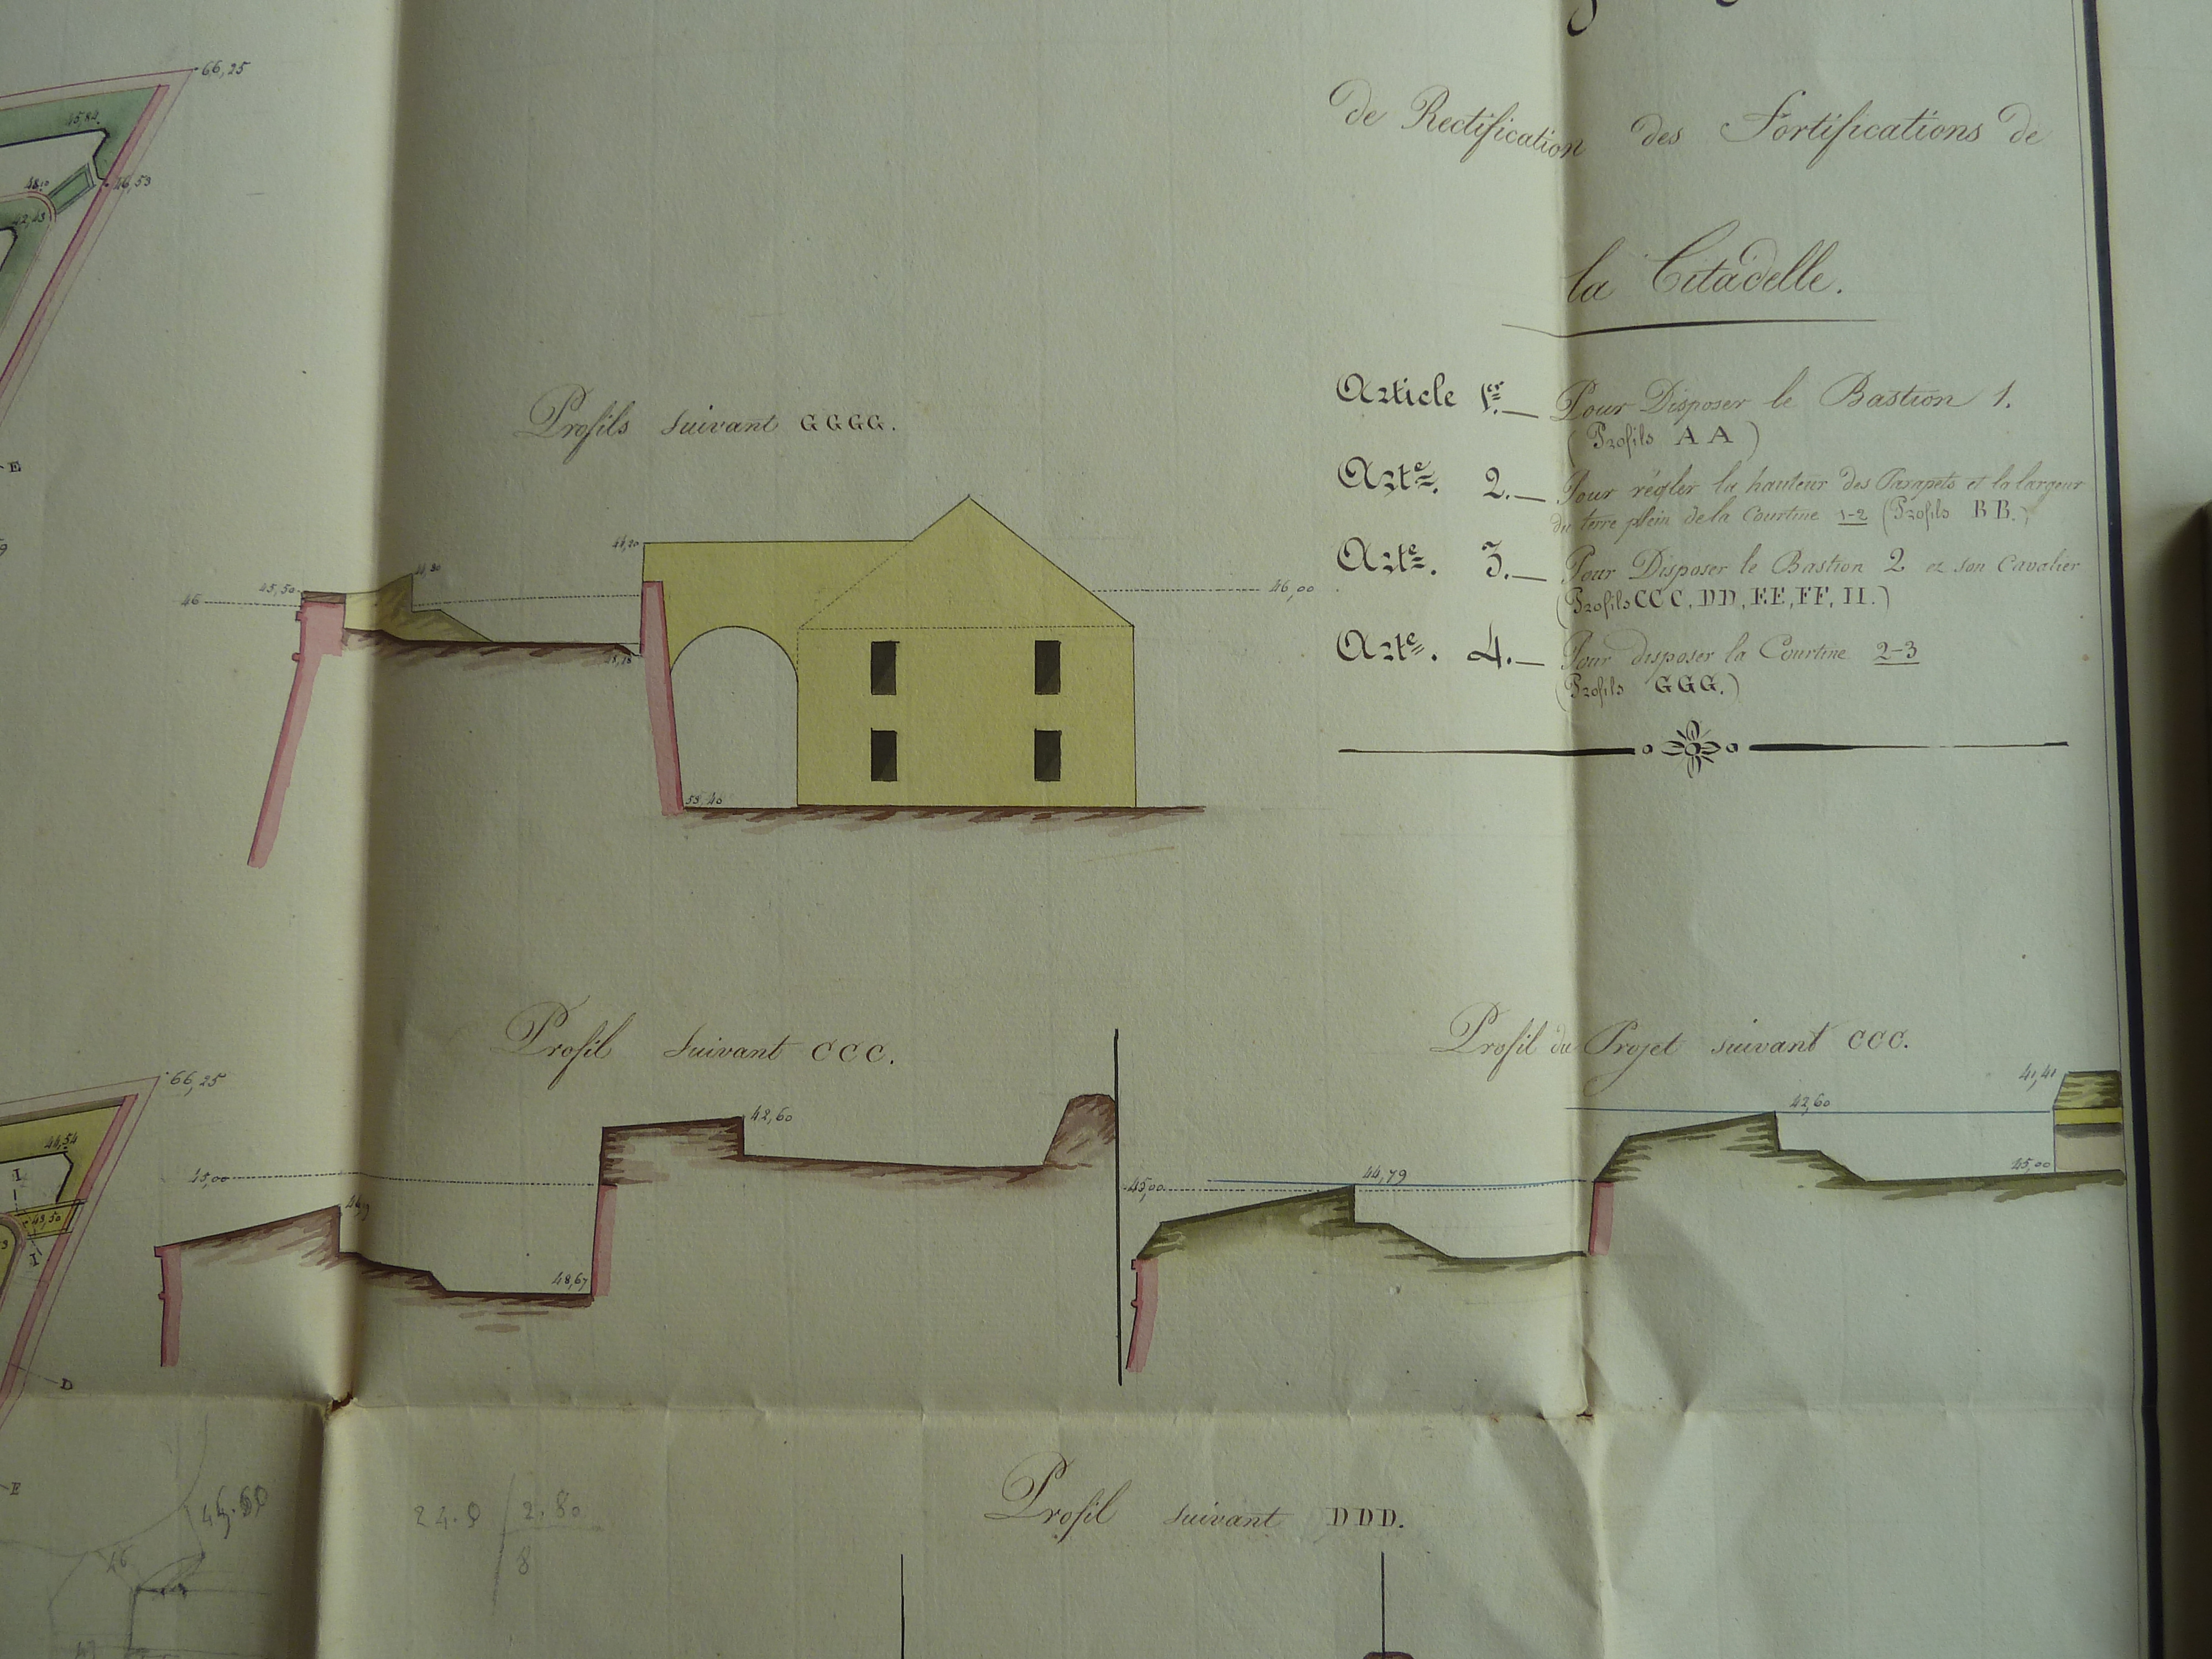 de Rectification des Fortifications de
la Citadelle.
Article 1er._ Pour Disposer le Bastion 1.
(Profils A A)
Arte. 2._ Pour régler la hauteur des Parapets et la largeur
du terre plein de la Courtine 1-2 (Profils B B.)
Arte. 3._ Pour Disposer le Bastion 2 et son Cavalier
(Profils CCC, DD, EE, FF, II.)
Arte. 4._ Pour disposer la Courtine 2-3
(Profils GGG.)
66,25
45,84
46,53
42,43
E
Profils suivant GGGG.
45,50
46
46,00
53,40
Profil suivant CCC.
45,00
42,60
48,67
Profil du Projet suivant CCC.
41,41
42,60
44,79
45,00
45,00
66,25
44,54
I
43,50
I
D
E
46
24.0 2.80
8
Profil suivant DDD.